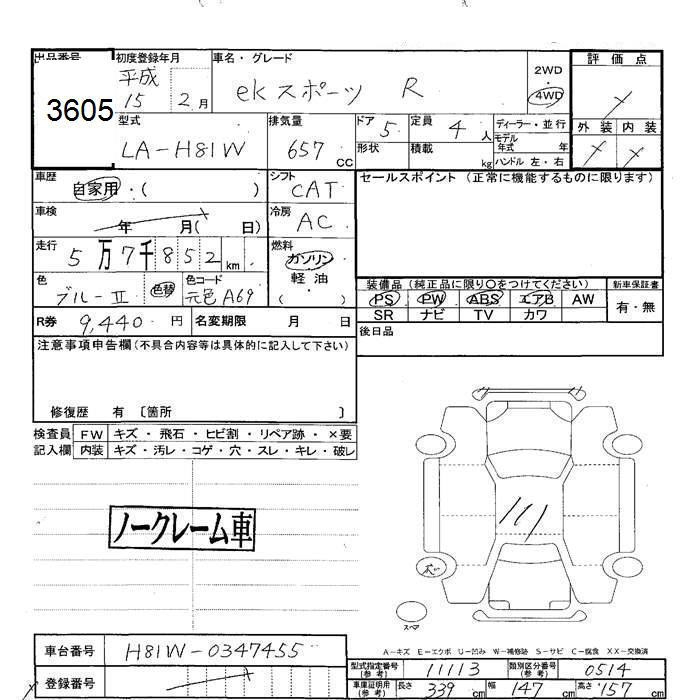 出品番号 初度登録年月 車名・グレード 評価点
3605
平成
15 2月
ekスポーツ R
2WD
4WD
型式 排気量 ドア 定員 ディーラー・並行 外装 内装
LA-H81W 657 CC 5 4人
モデル年式 年
形状 積載 kg ハンドル 左・右
車歴 シフト セールスポイント (正常に機能するものに限ります)
自家用・( ) CAT
車検 冷房
年 月( 日) AC
走行 燃料
5万7千852km ガソリン
軽油
・
( )
色 色コード
ブルーII 色替 元色A69
装備品 (純正品に限り○をつけてください) 新車保証書
PS PW ABS エアB AW 有・無
SR ナビ TV カワ
R券 9,440円 名変期限 月 日
後日品
注意事項申告欄(不具合内容等は具体的に記入して下さい)
修復歴 有 〔箇所 〕
検査員 FW キズ・飛石・ヒビ割・リペア跡・×要
記入欄 内装 キズ・汚レ・コゲ・穴・スレ・キレ・破レ
ノークレーム車
スペア
A-キズ E-エクボ U-凹み W-補修跡 S-サビ C-腐食 XX-交換済
車台番号 H81W-0347455
型式指定番号(参考) 11113 類別区分番号(参考) 0514
登録番号
車庫証明用(参考) 長さ 339cm 幅 147cm 高さ 157cm